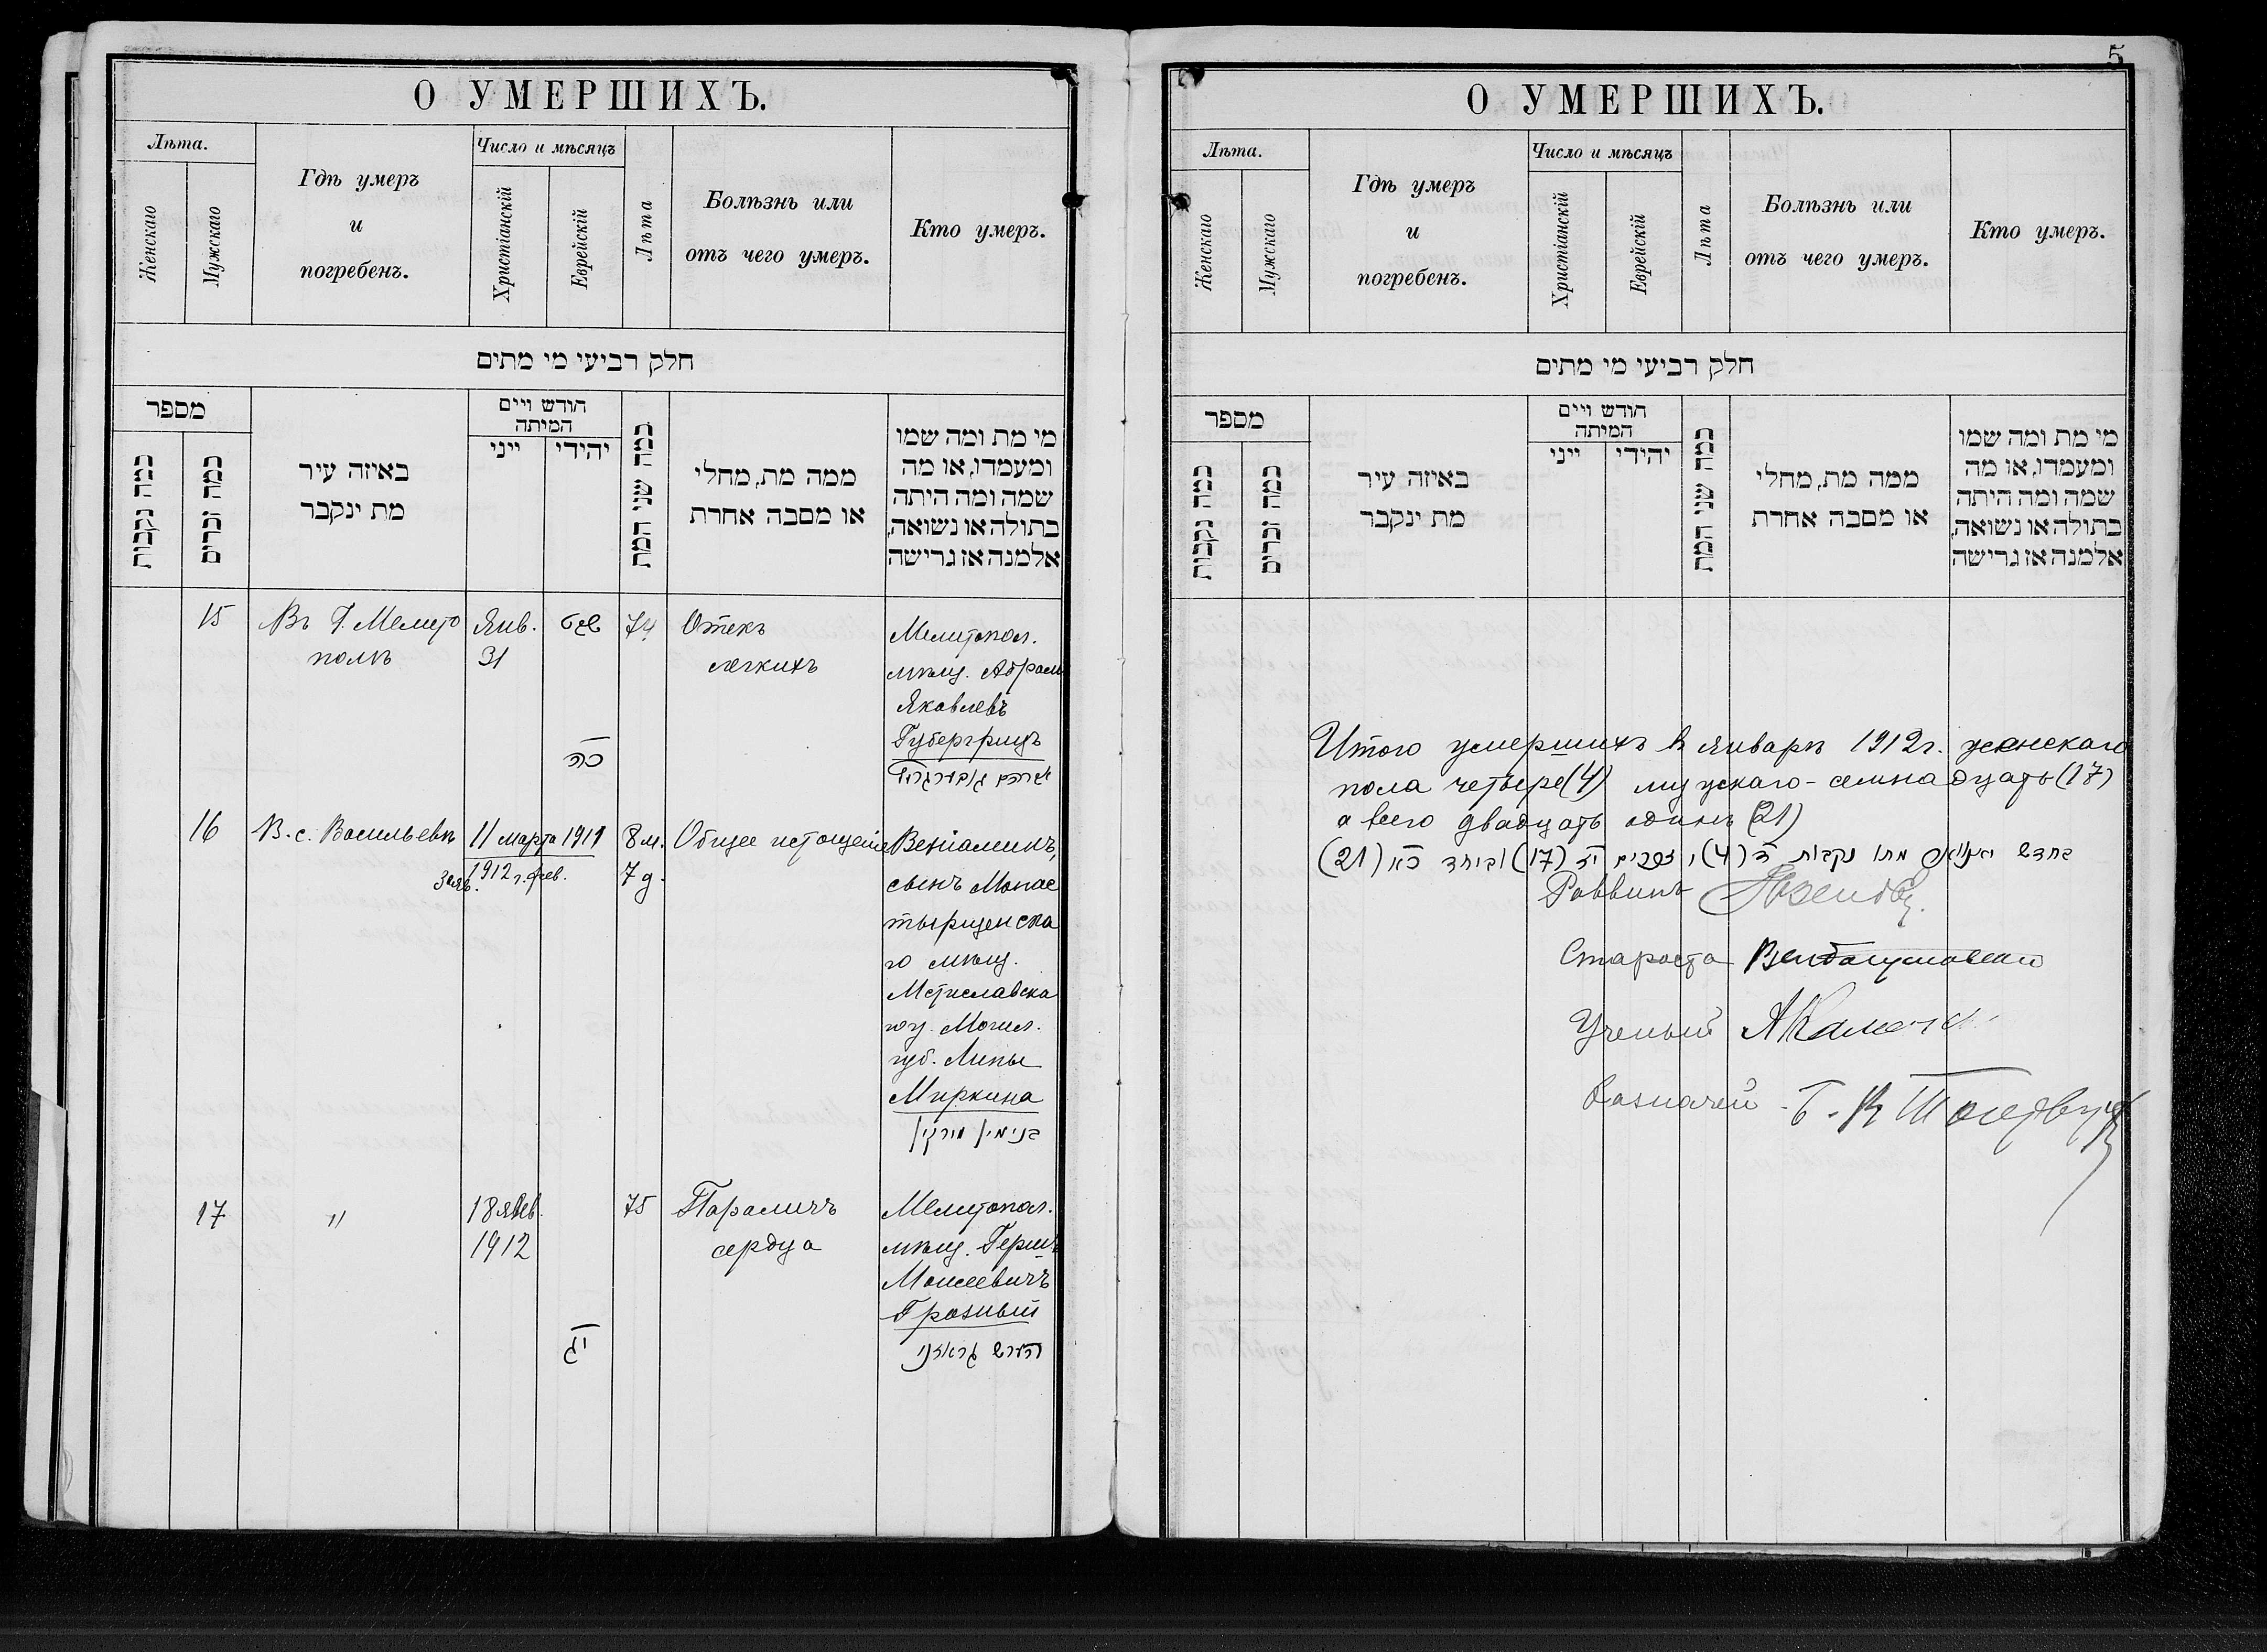 О УМЕРШИХЪ.
Лѣта.
Женскаго
Мужскаго
Гдѣ умеръ
и
погребенъ.
Число и мѣсяцъ
Христіанскій
Еврейскій
Лѣта
Болѣзнь или
отъ чего умеръ.
Кто умеръ.
חלק רביעי מי מתים
מספר
כמה נקבות
כמה זכרים
באיזה עיר
מת ינקבר
חודש ויים
המיתה
ייני
יהידי
כמה שני המת
ממה מת, מחלי
או מסבה אחרת
מי מת ומה שמו
ומעמדו, או מה
שמה ומה היתה
בתולה או נשואה,
אלמנה אז גרישה
15
Въ Г. Мелито
полѣ
Янв.
31
שבט
כה
74
Отекъ
легкихъ
Мелитопол.
мѣщ. Абрамъ
Яковлевъ
Губергрицъ
אברהם גובערגריץ
16
В. с. Васильевкѣ
11 марта 1911
1912 г. фев.
8 м.
7 д.
Общее истощеніе
Веніаминъ,
сынъ Монас
тырщенска
го мѣщ.
Мстиславска
го у. Могил.
губ. Липы
Миркина
בנימין מירקין
17
"
18 янв.
1912
יג
75
Параличъ
сердца
Мелитопол.
мѣщ. Гершъ
Моисеевичъ
Грозный
הירש גראזני
5
О УМЕРШИХЪ.
Лѣта.
Женскаго
Мужскаго
Гдѣ умеръ
и
погребенъ.
Число и мѣсяцъ
Христіанскій
Еврейскій
Лѣта
Болѣзнь или
отъ чего умеръ.
Кто умеръ.
חלק רביעי מי מתים
מספר
כמה נקבות
כמה זכרים
באיזה עיר
מת ינקבר
חודש ויים
המיתה
ייני
יהידי
כמה שני המת
ממה מת, מחלי
או מסבה אחרת
מי מת ומה שמו
ומעמדו, או מה
שמה ומה היתה
בתולה או נשואה,
אלמנה אז גרישה
Итого умершихъ въ январѣ 1912 г. женскаго
пола четыре (4) мужскаго - семнадцать (17)
а всего двадцать одинъ (21)
בחדש יאנואר מתו נקבות ד (4) זכרים יז (17) וביחד כא (21)
Раввинъ
Староста
Ученый
Казначей